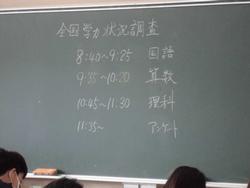 全国学力状況調査
8:40~9:25 国語
9:35~10:20 算数
10:45~11:30 理科
11:35~ アンケート